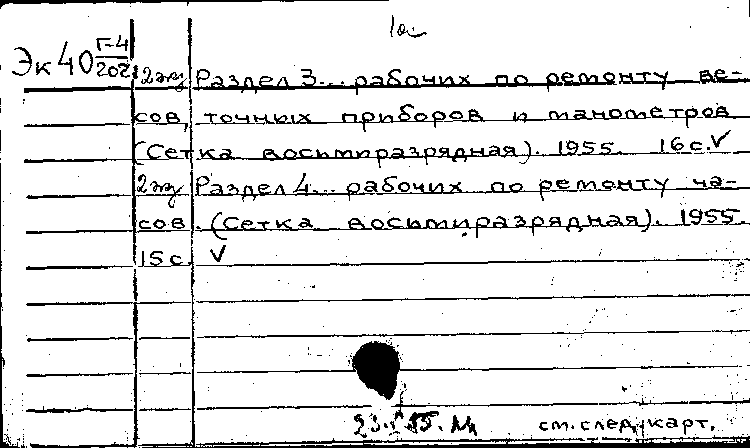 Эк 40 Г-4
202
2 экз Раздел 3... рабочих по ремонту ве-
сов, точных приборов и манометров
(Сетка восьмиразрядная). 1955. 16 с. V
2 экз Раздел 4... рабочих по ремонту ча-
сов. (Сетка восьмиразрядная). 1955.
15 с. V
см. след. карт.